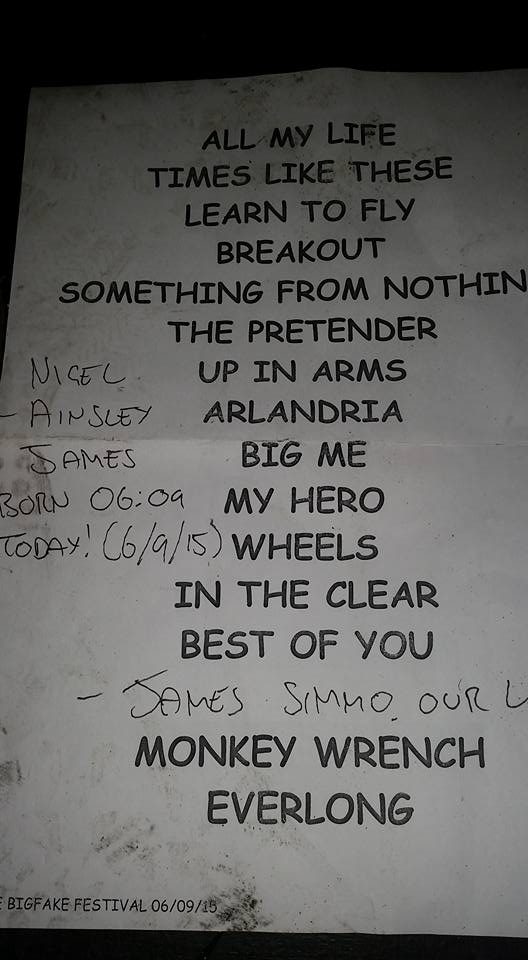 ALL MY LIFE
TIMES LIKE THESE
LEARN TO FLY
BREAKOUT
SOMETHING FROM NOTHIN
THE PRETENDER
NIGEL UP IN ARMS
- AINSLEY ARLANDRIA
JAMES BIG ME
BORN 06:09 MY HERO
TODAY! (6/9/15) WHEELS
IN THE CLEAR
BEST OF YOU
- JAMES SIMMO OUR L
MONKEY WRENCH
EVERLONG
E BIGFAKE FESTIVAL 06/09/15